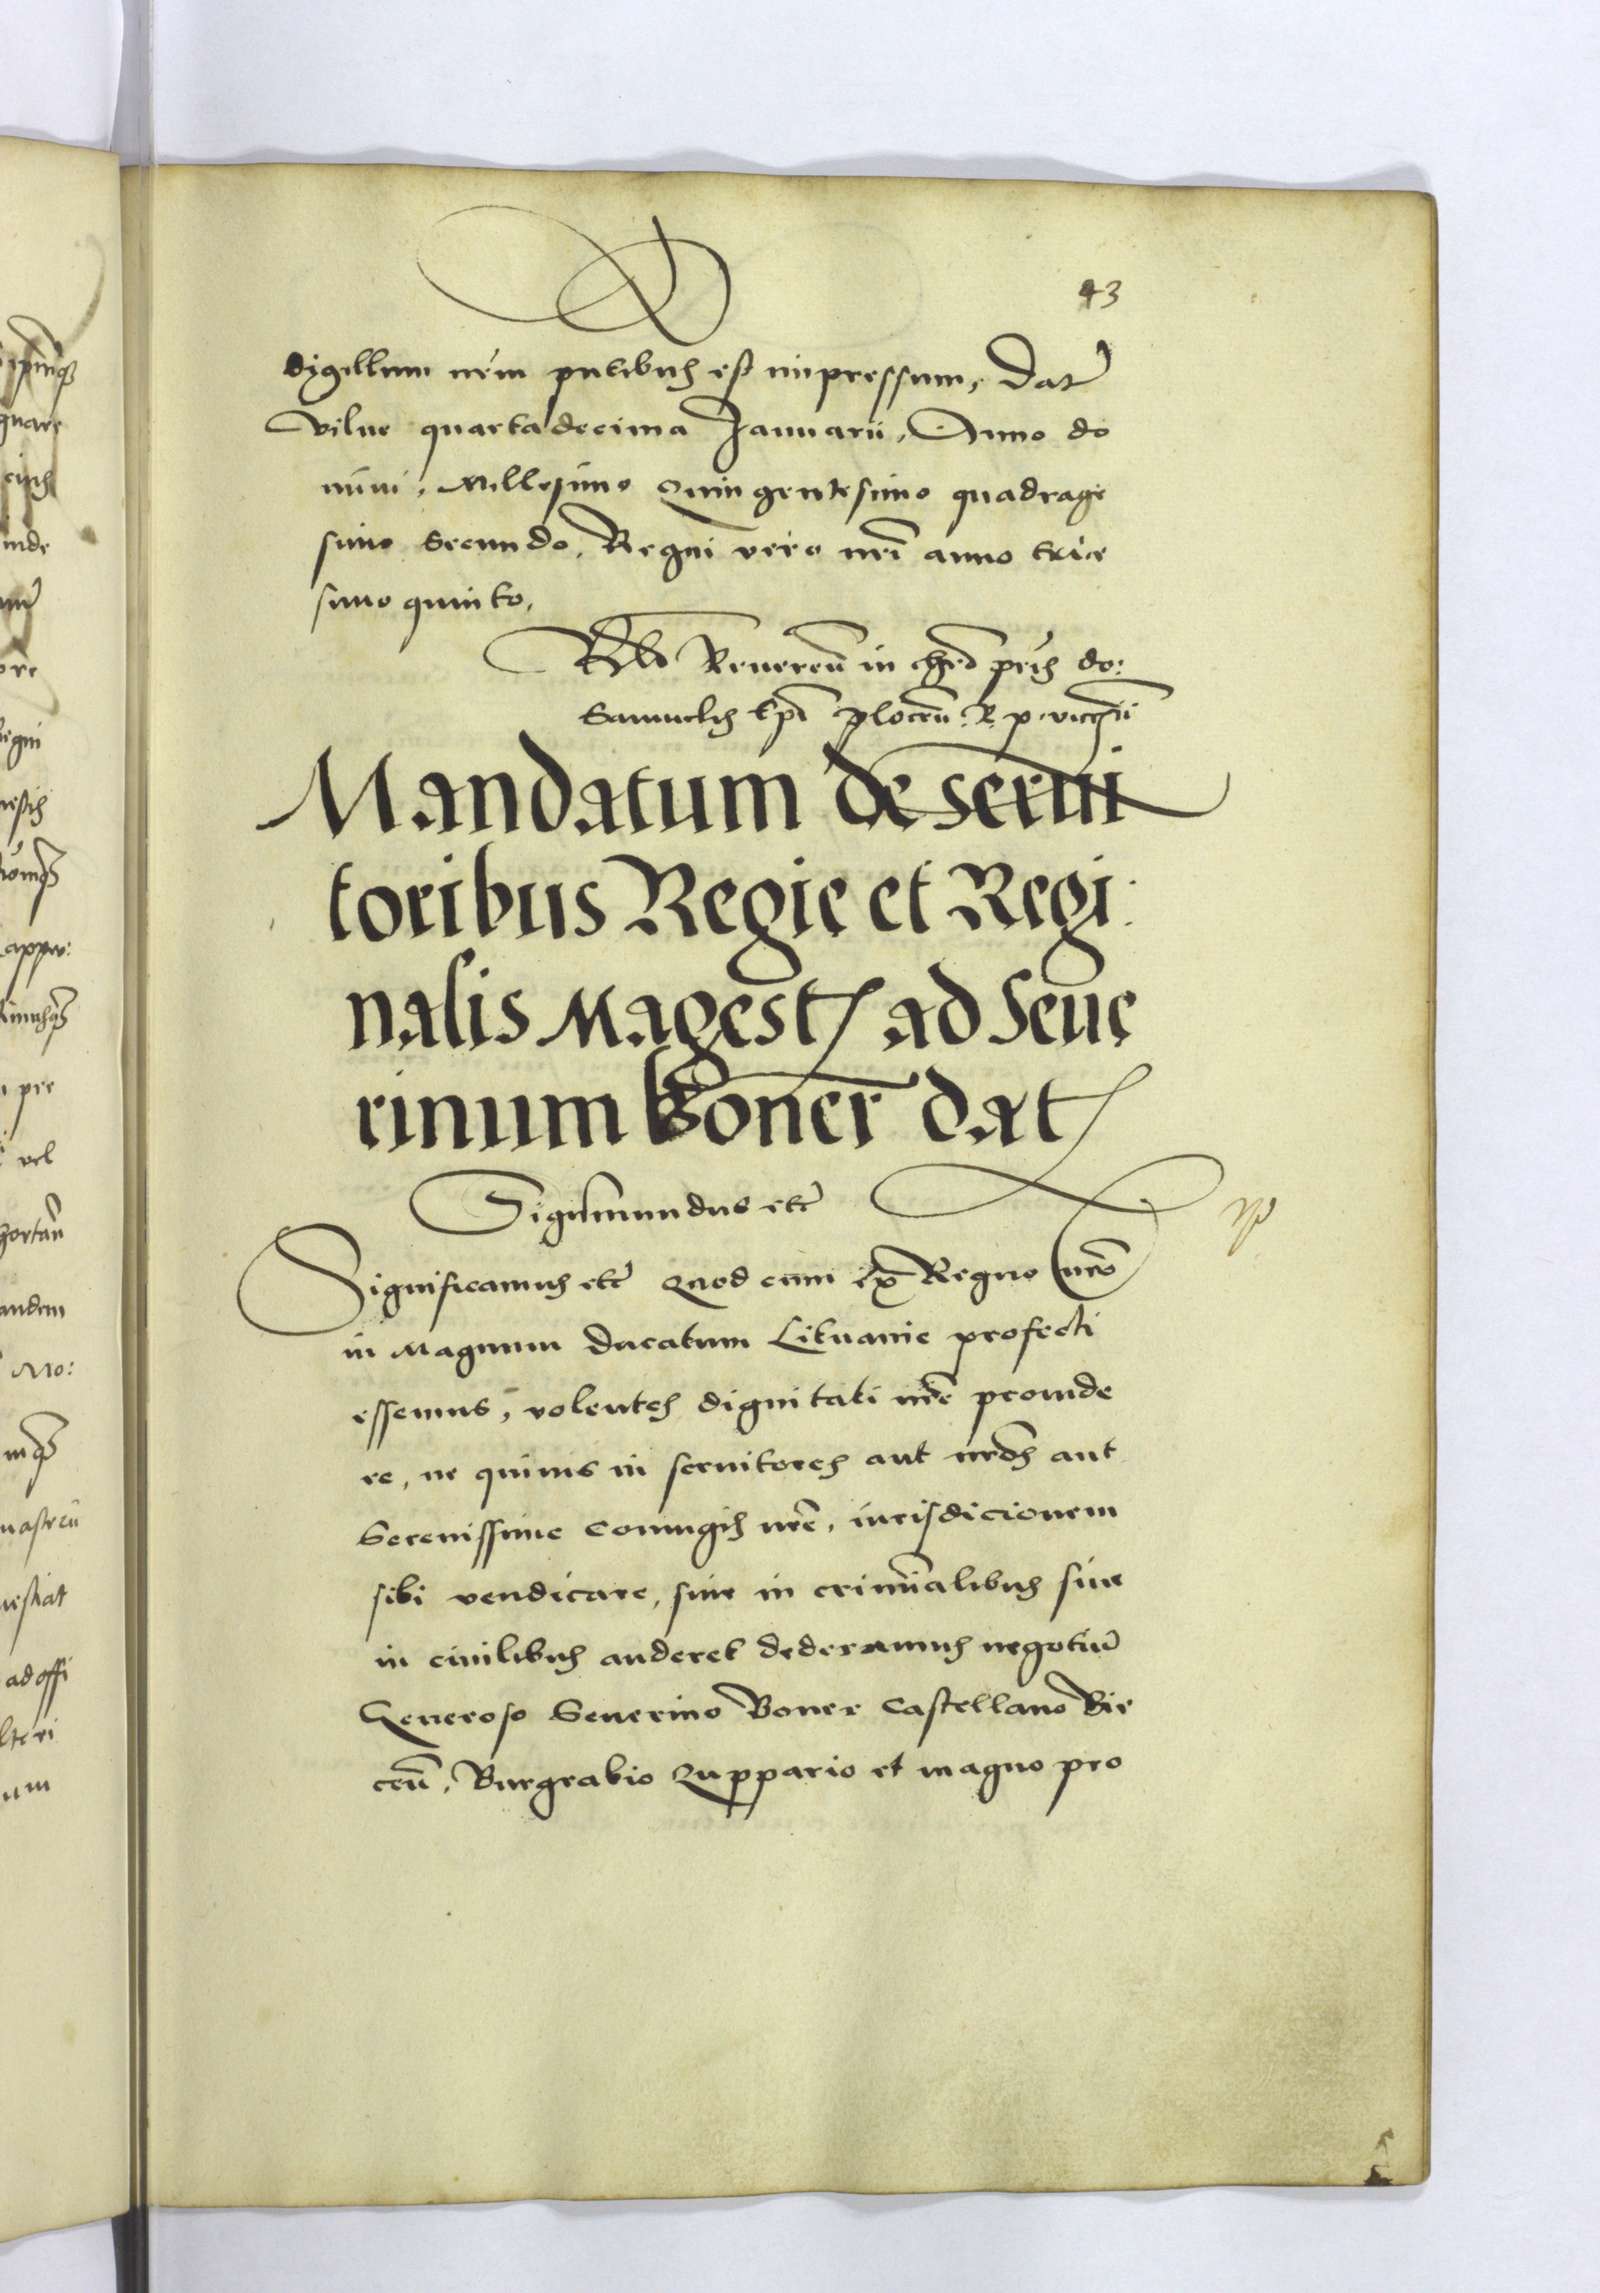 43
Sigillum nrm pntibus est impressum, Dat
Vilne quartadecima Januarii, Anno do
mini, Millesimo Quingentesimo quadrage
simo secundo, Regni vero nri anno trice
simo quinto,
Rlo Reueren in chro pris do:
Samuelis Epi plocen R. p. vicecan
Mandatum de serui
toribus Regie et Regi
nalis Magest ad Seue
rinum Boner dat
Sigismundus etc
Significamus etc Quod cum ex Regno nro
in Magnum Ducatum Lituanie profecti
essemus, volentes dignitati nre prouide
re, ne quiuis in seruitores aut nros aut
Serenissime Coniugis nre, iurisdicionem
sibi vendicare, siue in criminalibus siue
in ciuilibus auderet dederamus negotiu
Generoso Seuerino Boner Castellano Bie
cen, Burgrabio Zuppario et magno pro